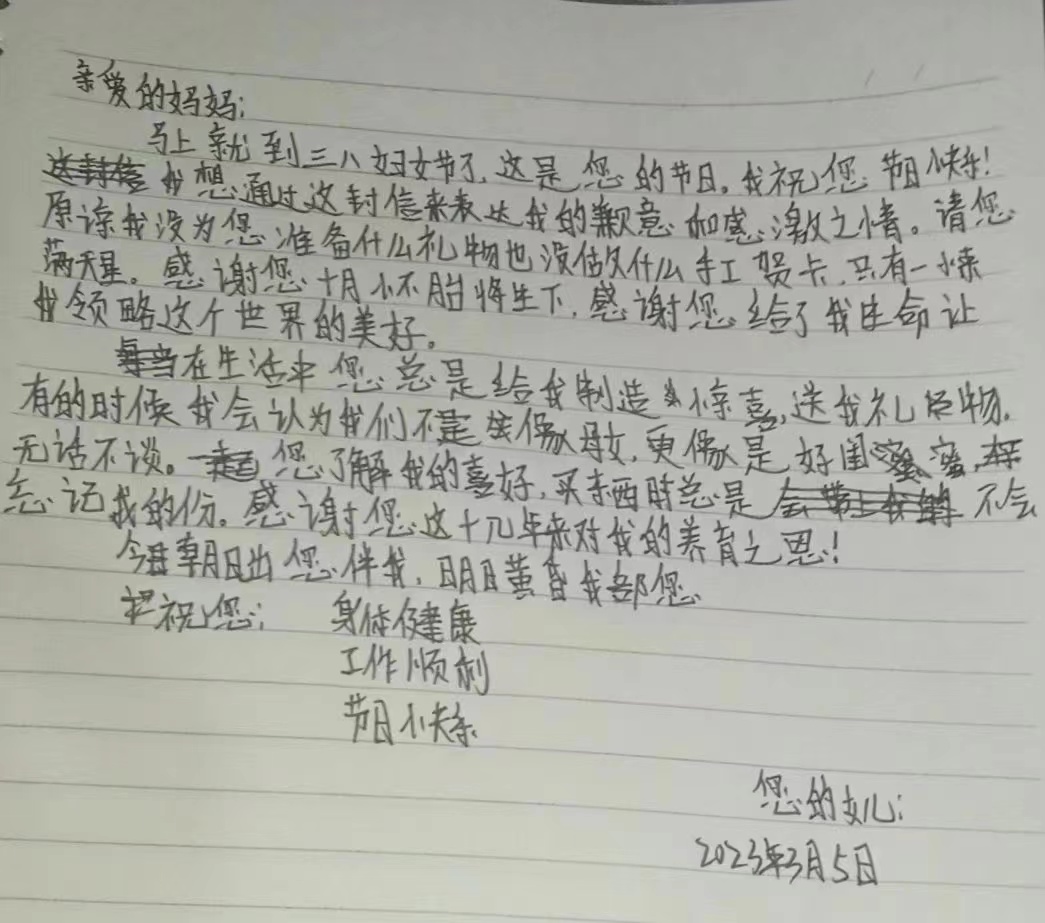 亲爱的妈妈:
马上就到三八妇女节了,这是您的节日。我祝您节日快乐!
我想通过这封信来表达我的歉意和感激之情。请您
原谅我没为您准备什么礼物也没做什么手工贺卡,只有一束
满天星。感谢您十月怀胎将生下,感谢您给了我生命让
我领略这个世界的美好。
在生活中您总是给我制造惊喜,送我礼物.
有的时候我会认为我们不是像母女,更像是好闺蜜,
无话不谈。您了解我的喜好,买东西时总是不会
忘记我的份。感谢您这十几年来对我的养育之恩!
今日朝日出您伴我,明日黄昏我部您
祝您: 身体健康
工作顺利
节日快乐
您的女儿:
2023年3月5日